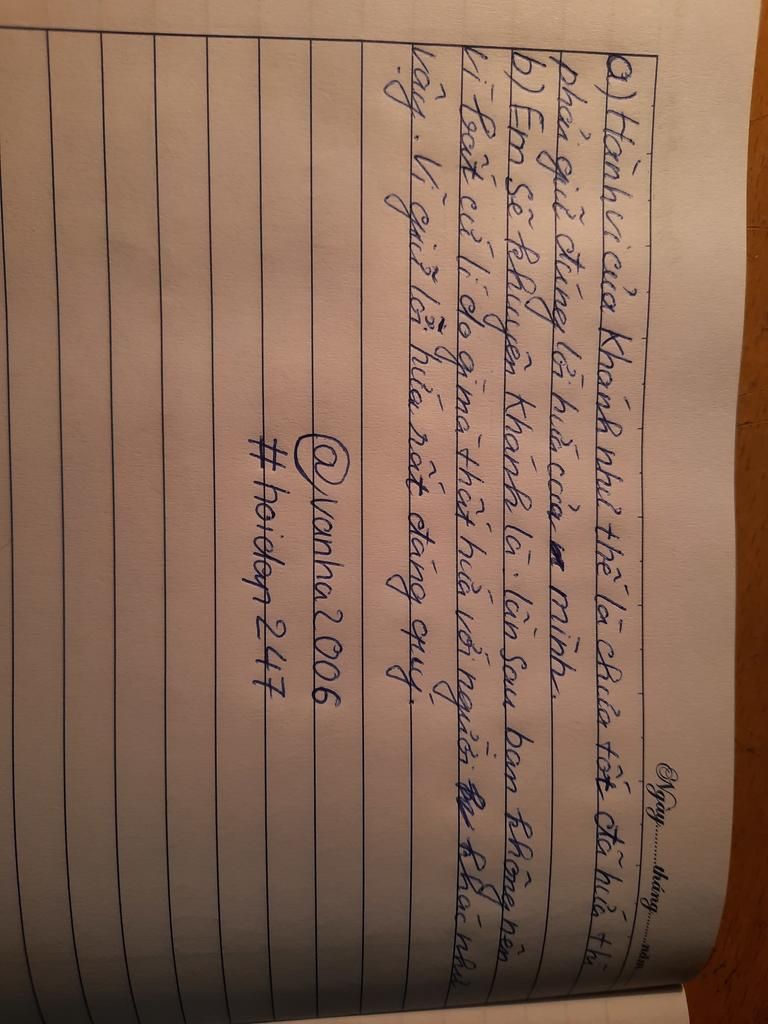 Ngày.........tháng.........năm
a) Hành vi của Khánh như thế là chưa tốt đã hứa thì
phải giữ đúng lời hứa của mình.
b) Em sẽ khuyên Khánh là: lần sau bạn không nên
vì bất cứ lí do gì mà thất hứa với người khác như
vậy. Vì giữ lời hứa rất đáng quý.
@vanha2006
#hoidap247